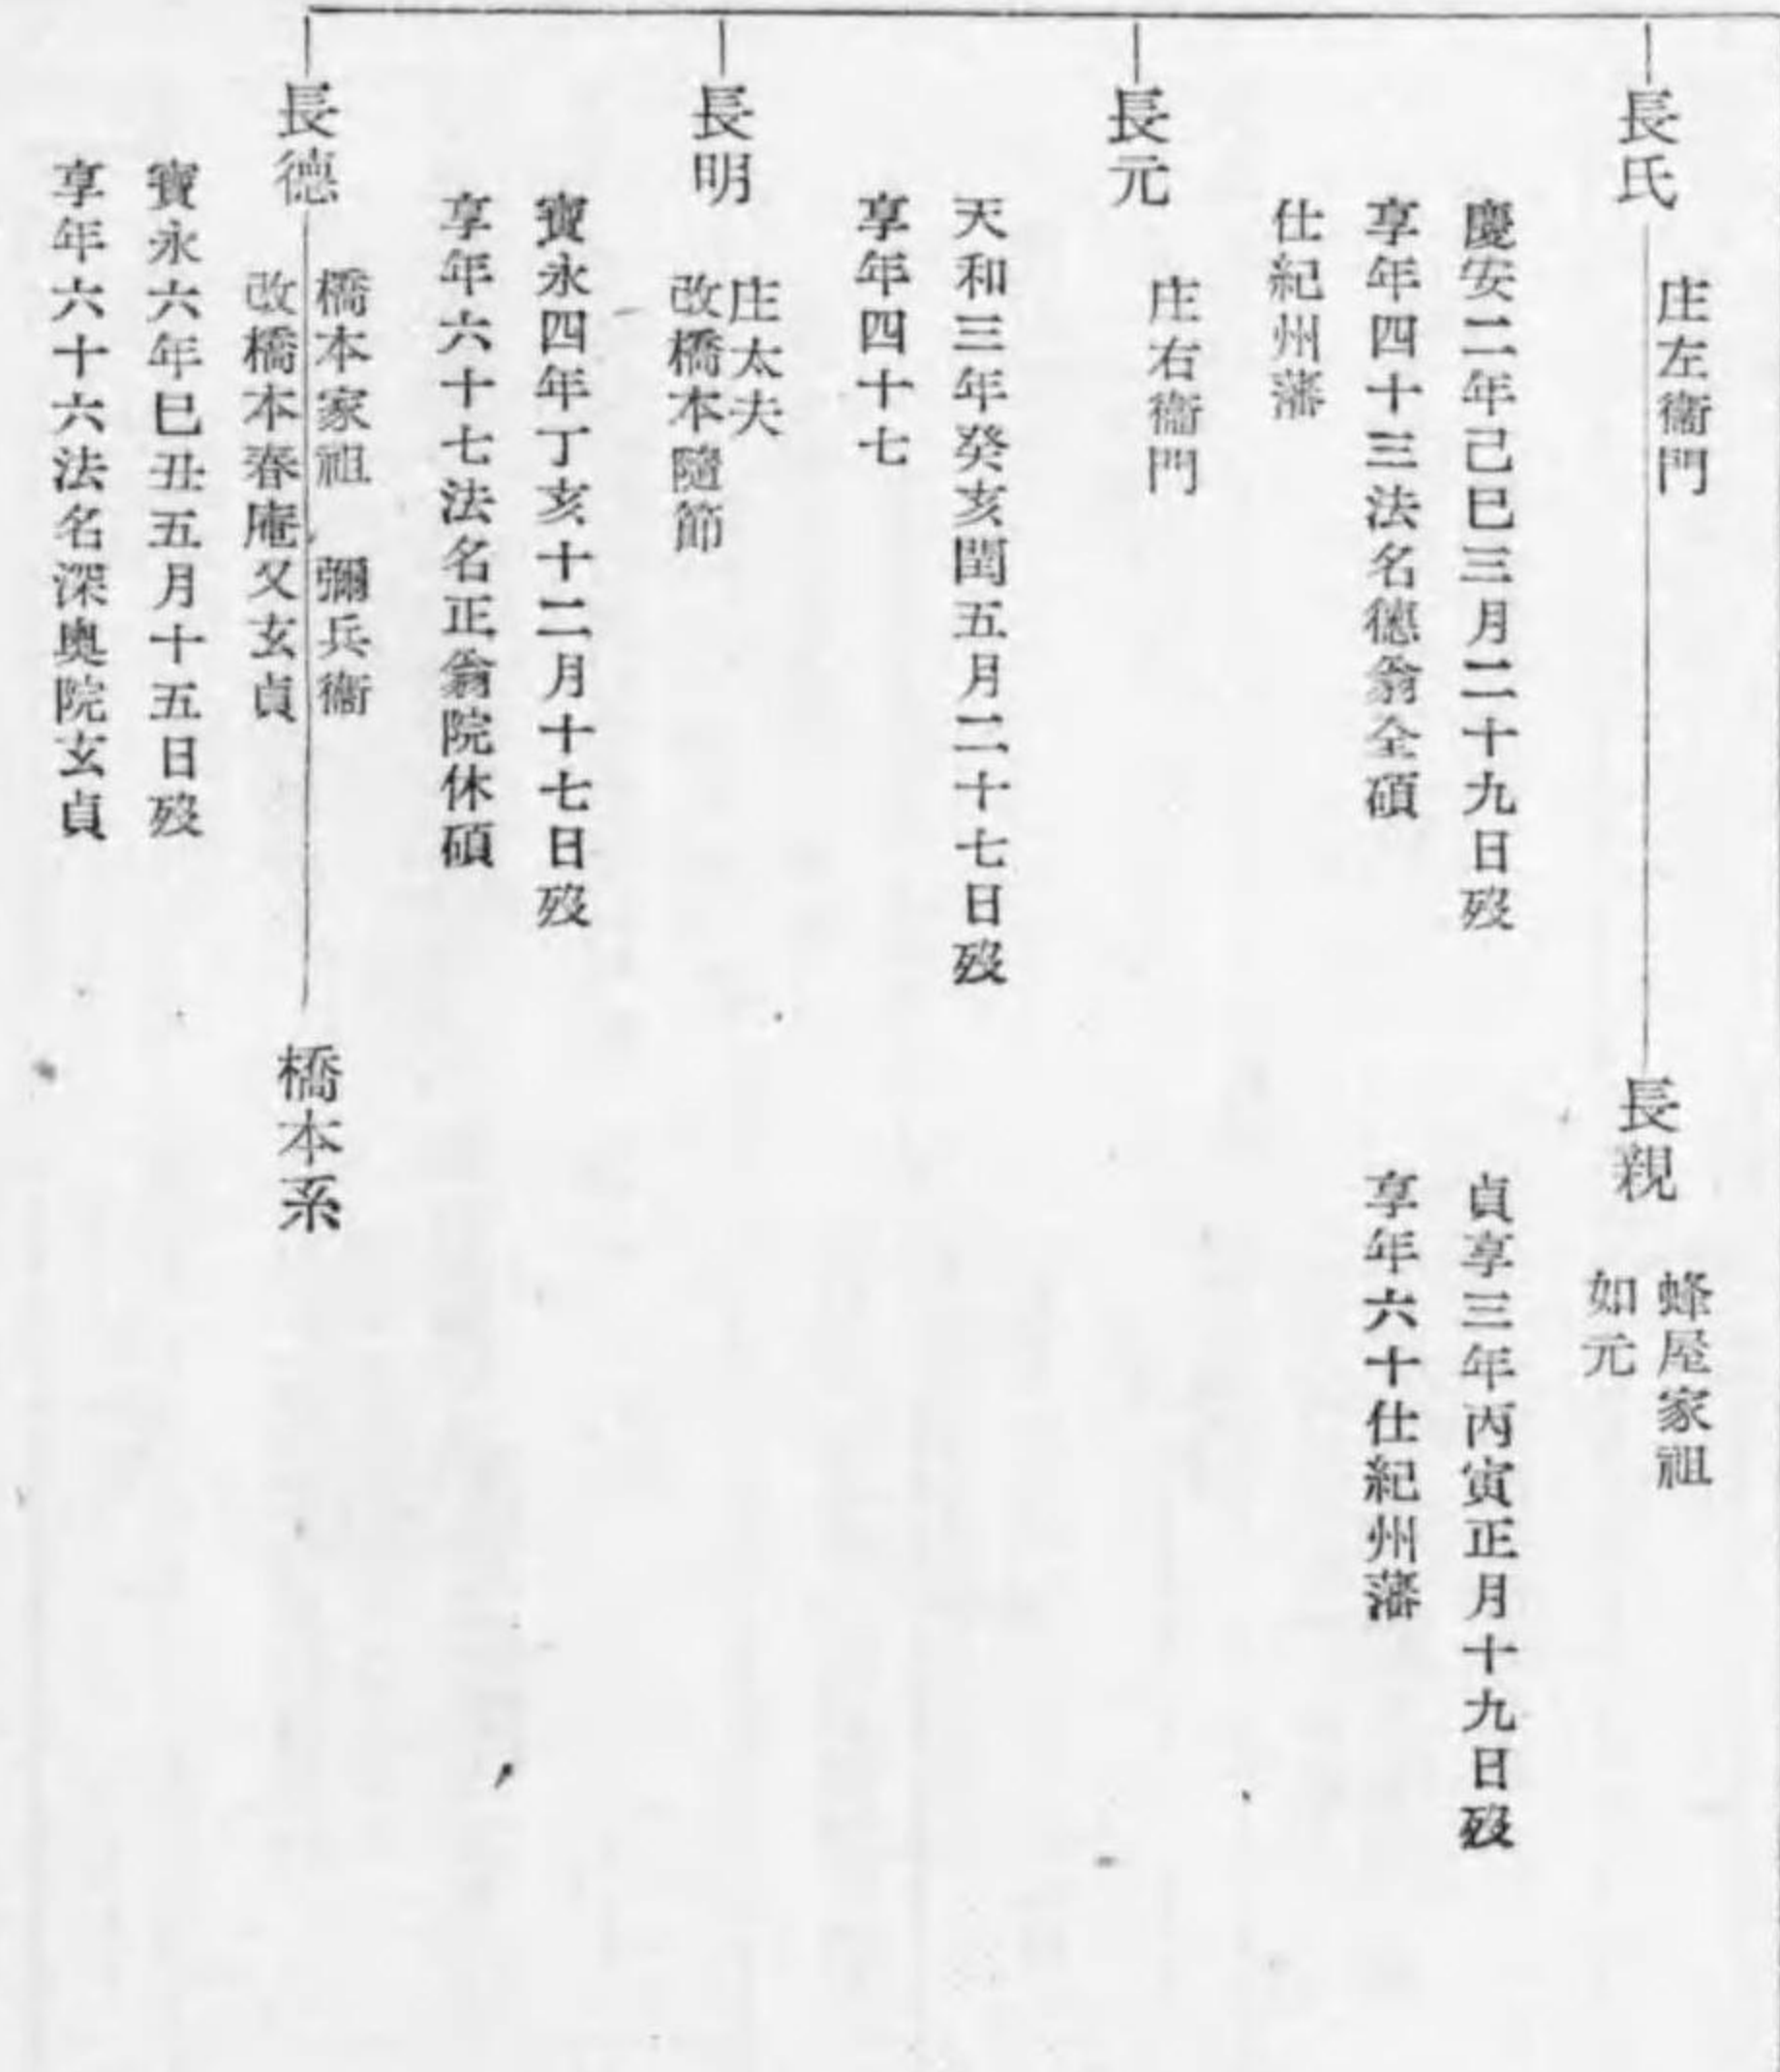 長氏
庄左衞門
慶安二年己巳三月二十九日歿
享年四十三法名德翁全碩
仕紀州藩
長親
蜂屋家祖
如元
貞享三年丙寅正月十九日歿
享年六十仕紀州藩
長元
庄右衞門
天和三年癸亥閏五月二十七日歿
享年四十七
長明
庄太夫
改橋本隨節
寶永四年丁亥十二月十七日歿
享年六十七法名正翁院休碩
長德
橋本家祖　彌兵衞
改橋本春庵又玄貞
寶永六年巳丑五月十五日歿
享年六十六法名深奥院玄貞
橋本系